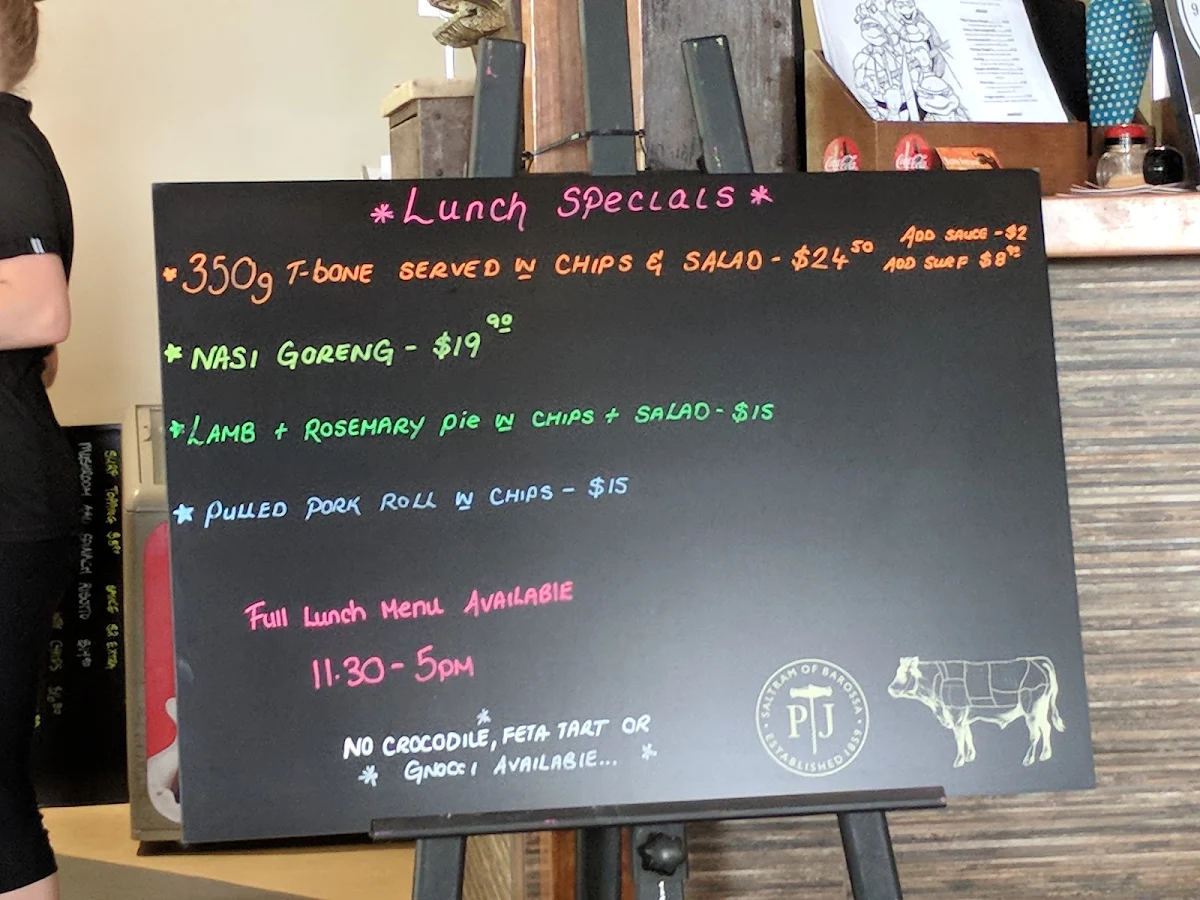 *Lunch Specials*
*350g T-bone served w chips & salad - $24.50
Add sauce - $2
Add surf $8.90
*Nasi Goreng - $19.90
*Lamb + Rosemary pie w chips + salad - $15
*Pulled pork roll w chips - $15
Full Lunch Menu Available
11.30 - 5pm
*No crocodile, feta tart or
* Gnocci available... *
SALTRAM OF BAROSSA
PJ
ESTABLISHED 1859
Coca-Cola
Coca-Cola